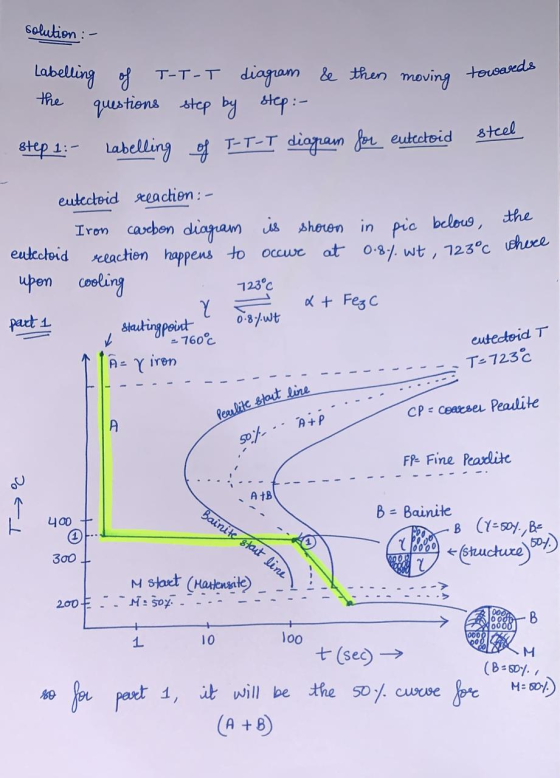 solution :-
Labelling of T-T-T diagram & then moving towards
the questions step by step :-
step 1 :- Labelling of T-T-T diagram for eutectoid steel
eutectoid reaction :-
Iron carbon diagram is shown in pic below, the
eutectoid reaction happens to occur at 0.8% wt, 723°C where
upon cooling
723°C
γ ⇌ α + Fe3C
0.8%wt
part 1
starting point
= 760°C
eutectoid T
T = 723°C
A = γ iron
Pearlite start line
CP = coarser Pearlite
A
50%
A+P
FP = Fine Pearlite
A+B
T → °C
B = Bainite
400
Bainite start line
B (γ=50%, B=
50%)
1
1
γ
γ
(structure)
300
M start (Martensite)
200
M = 50%
B
M
(B=50%,
M=50%)
1 10 100
t (sec) →
so for part 1, it will be the 50% curve for
(A + B)